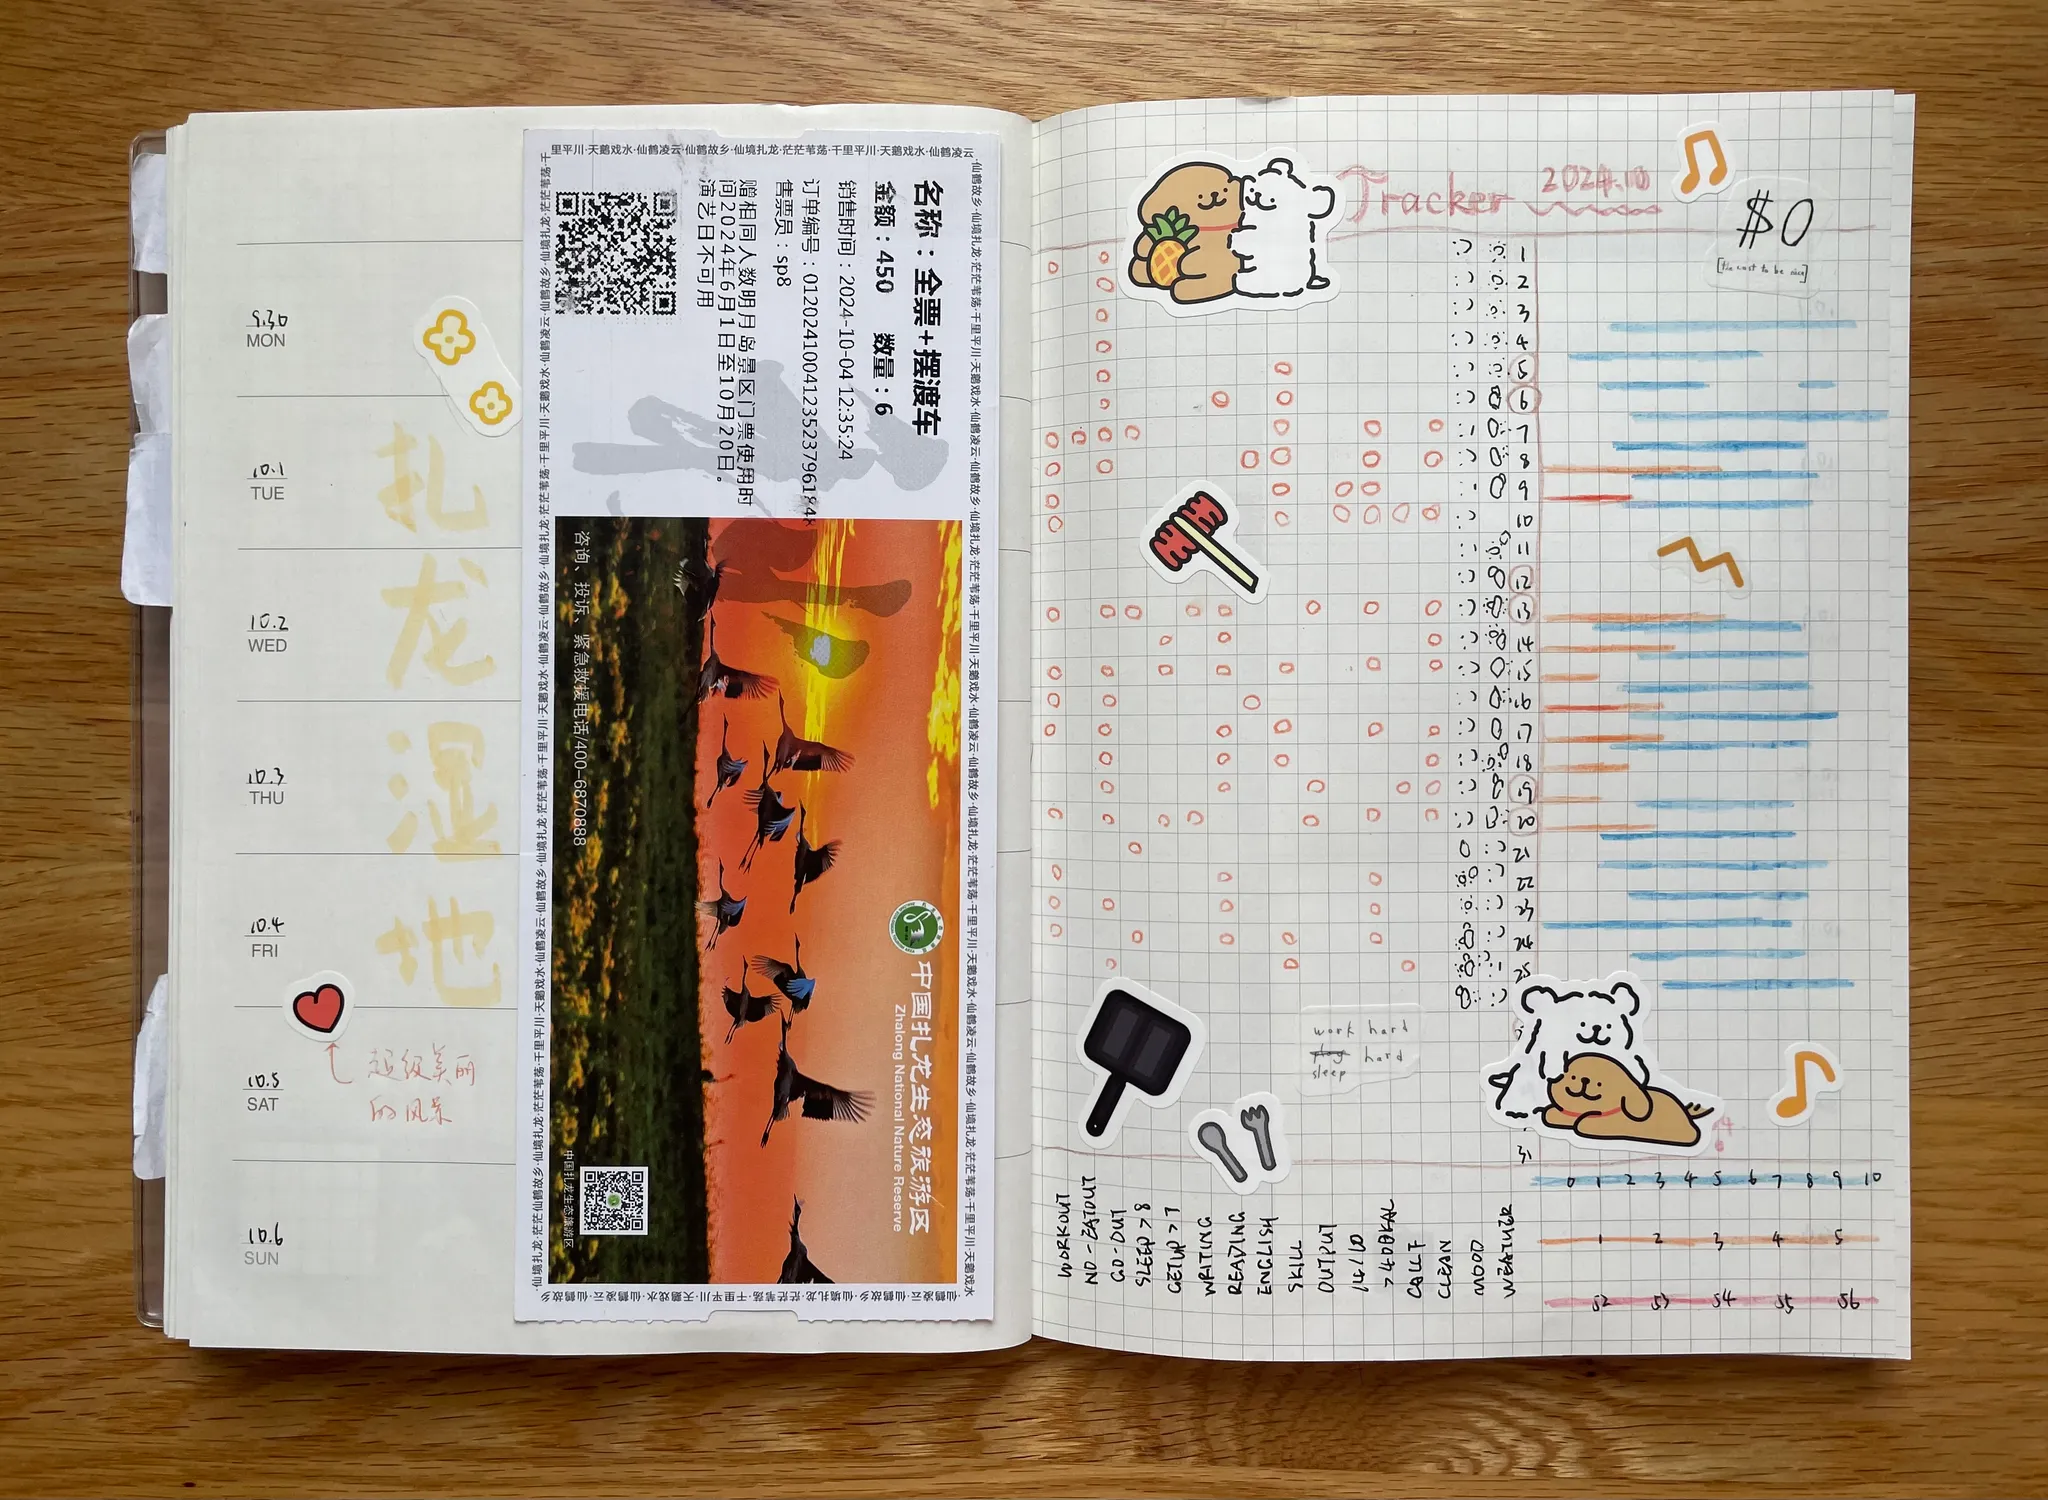 9.30
MON
10.1
TUE
10.2
WED
10.3
THU
10.4
FRI
10.5
SAT
10.6
SUN
扎龙湿地
超级美丽
的风景
里平川·天鹅戏水·仙鹤凌云·仙鹤故乡·仙境扎龙·茫茫苇荡·千里平川·天鹅戏水·仙鹤凌云
名称：全票+摆渡车
金额：450 数量：6
销售时间：2024-10-04 12:35:24
订单编号：01202410041235237961848
售票员：sp8
赠相同人数明月岛景区门票使用时
间2024年6月1日至10月20日。
演艺日不可用
咨询、投诉、紧急救援电话/400-6870888
中国扎龙生态旅游区
Zhalong National Nature Reserve
中国扎龙生态旅游区
Tracker 2024.10
$0
[the cost to be nice]
1
2
3
4
5
6
7
8
9
10
11
12
13
14
15
16
17
18
19
20
21
22
23
24
25
31
work hard
play hard
sleep
WORKOUT
NO-EATOUT
GO-OUT
SLEEP>8
GETUP>7
WRITING
READING
ENGLISH
SKILL
OUTPUT
14/10
>400KAL
CALF
CLEAN
MOOD
WEATHER
0 1 2 3 4 5 6 7 8 9 10
1 2 3 4 5
52 53 54 55 56